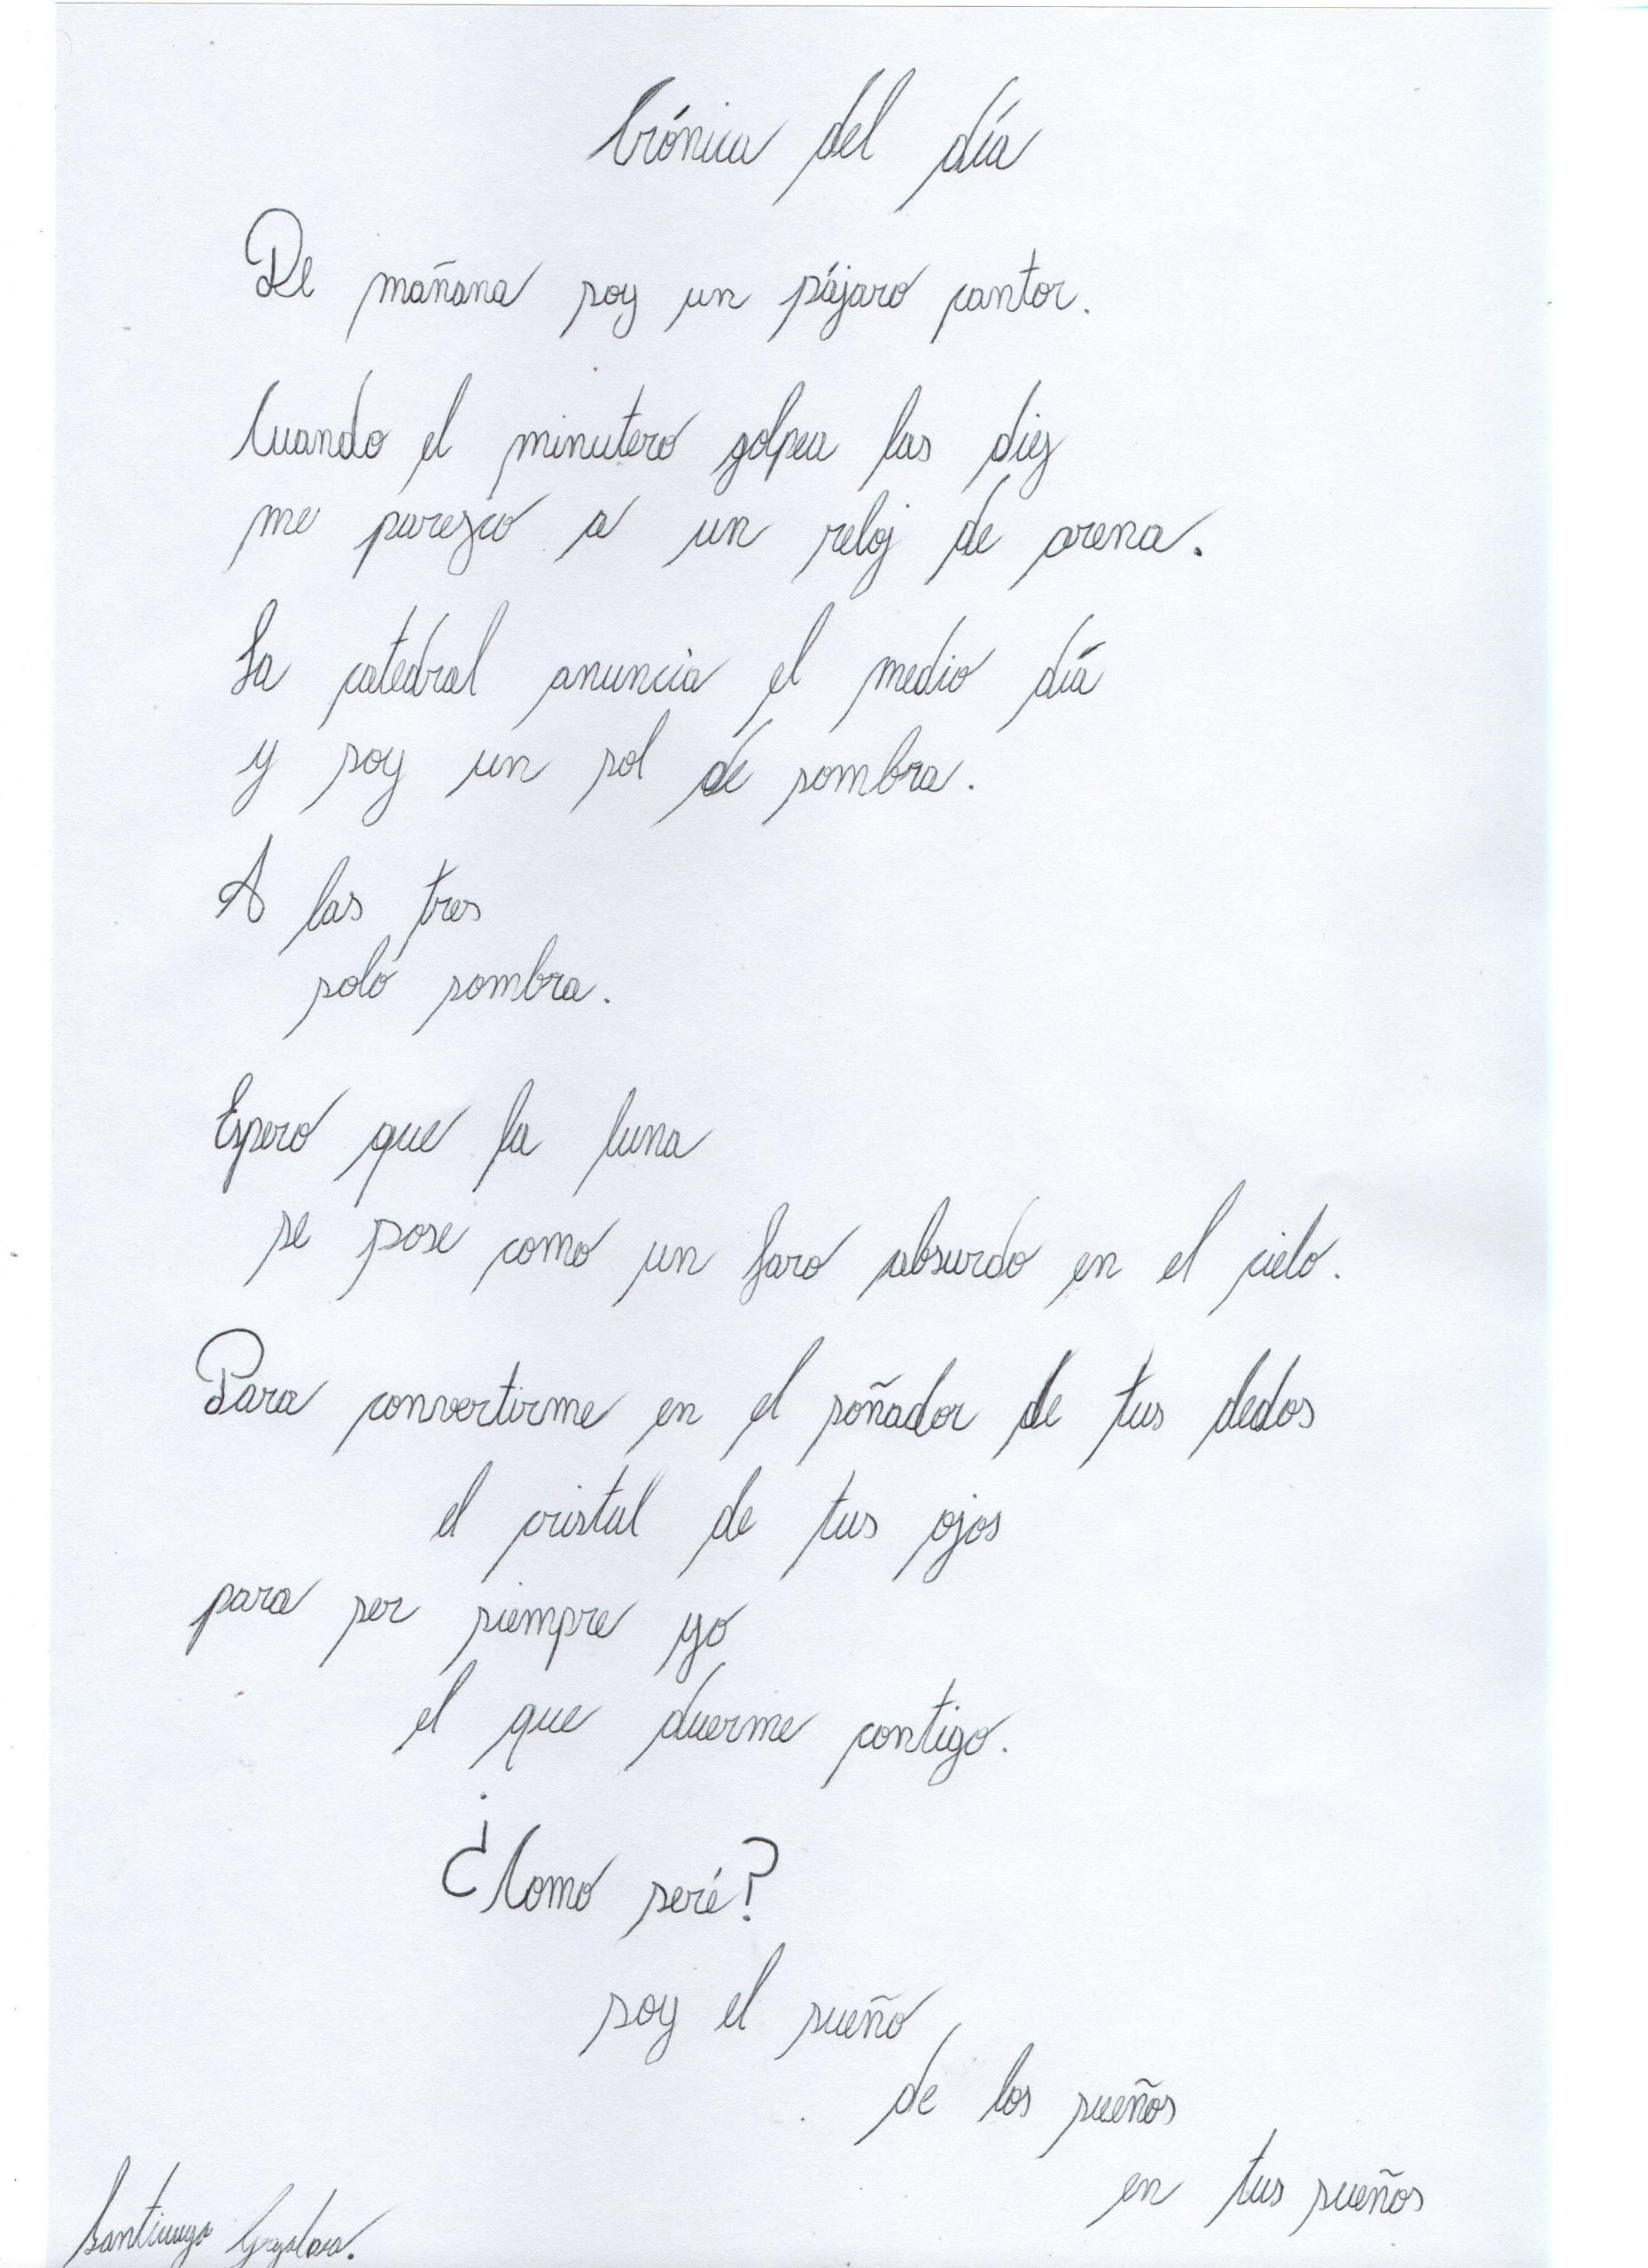 Crónica del día
De mañana soy un pájaro cantor.
Cuando el minutero golpea las diez
me parezco a un reloj de arena.
La catedral anuncia el medio día
y soy un sol de sombra.
A las tres
solo sombra.
Espero que la luna
se pose como un faro absurdo en el cielo.
Para convertirme en el soñador de tus dedos
el cristal de tus ojos
para ser siempre yo
el que duerme contigo.
¿Como seré?
soy el sueño
de los sueños
en tus sueños
Santiago